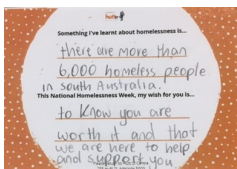 Something I've learnt about homelessness is...
there are more than
6,000 homeless people
in south Australia.
This National Homelessness Week, my wish for you is...
to know you are
worth it and that
we are here to help
and support you